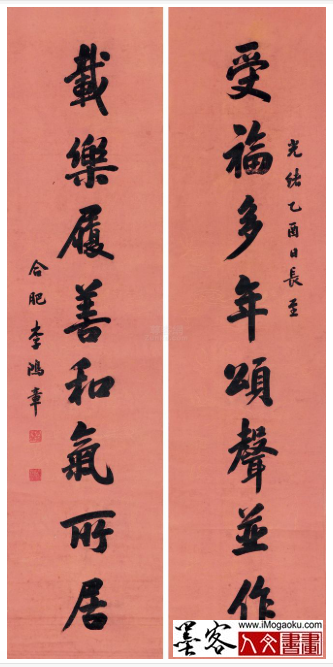 受福多年頌聲並作
光緒乙酉日長至
載樂履善和氣所居
合肥李鴻章
www.iMogaoku.com
墨客
人文書畫